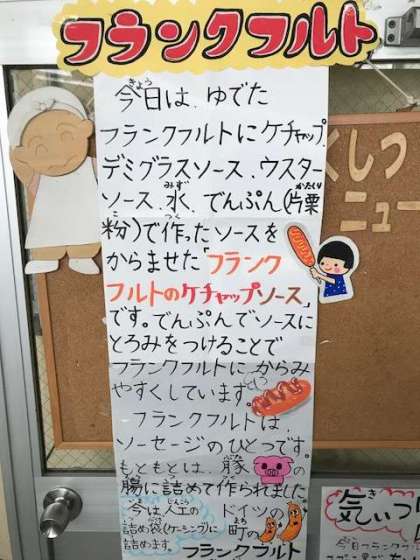 フランクフルト
今日は、ゆでた
フランクフルトにケチャップ、
デミグラスソース、ウスター
ソース、水、でんぷん(片栗
粉)で作ったソースを
からませた「フランク
フルトのケチャップソース」
です。でんぷんでソースに
とろみをつけることで
フランクフルトにからみ
やすくしています。
フランクフルトは、
ソーセージのひとつです。
もともとは、豚の
腸に詰めて作られました。
今は人工の
詰め袋(ケーシング)に
詰めます。
ドイツの
町の
フランクフルト
くしつ
ニュー
気いっ
今日フランクフ